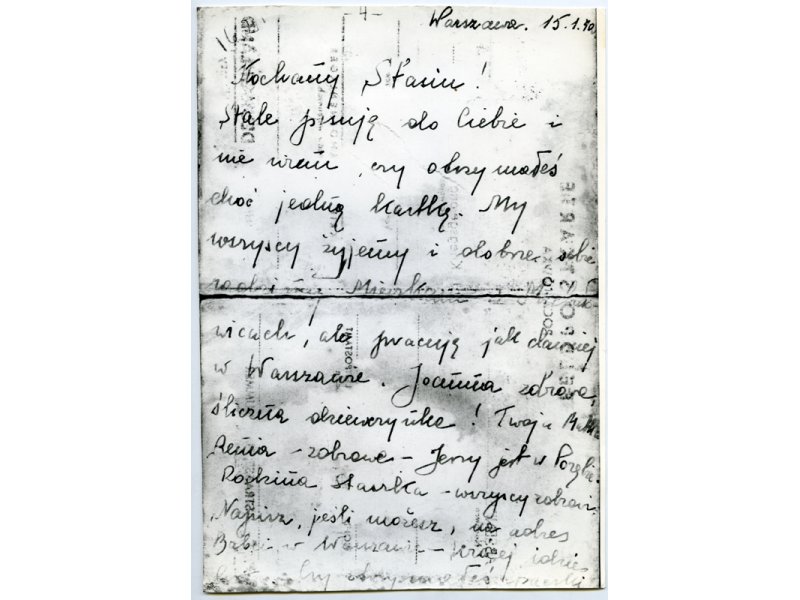 -7-
Warszawa. 15.1.40
16
Kochany Stasiu!
Stale pisuję do Ciebie i
nie wiem, czy otrzymałeś
choć jedną kartkę. My
wszyscy żyjemy i dobrze sobie
radzimy
wicach, ale pracuję jak dawniej
w Warszawie. Joanna zdrowa,
śliczna dziewczynka! Twoja Matka
Renia - zdrowe - Jerzy jest w
Rodzina Staszka - wszyscy zdrowi.
Napisz, jeśli możesz, na adres
w Warszawie -
Czy otrzymałeś